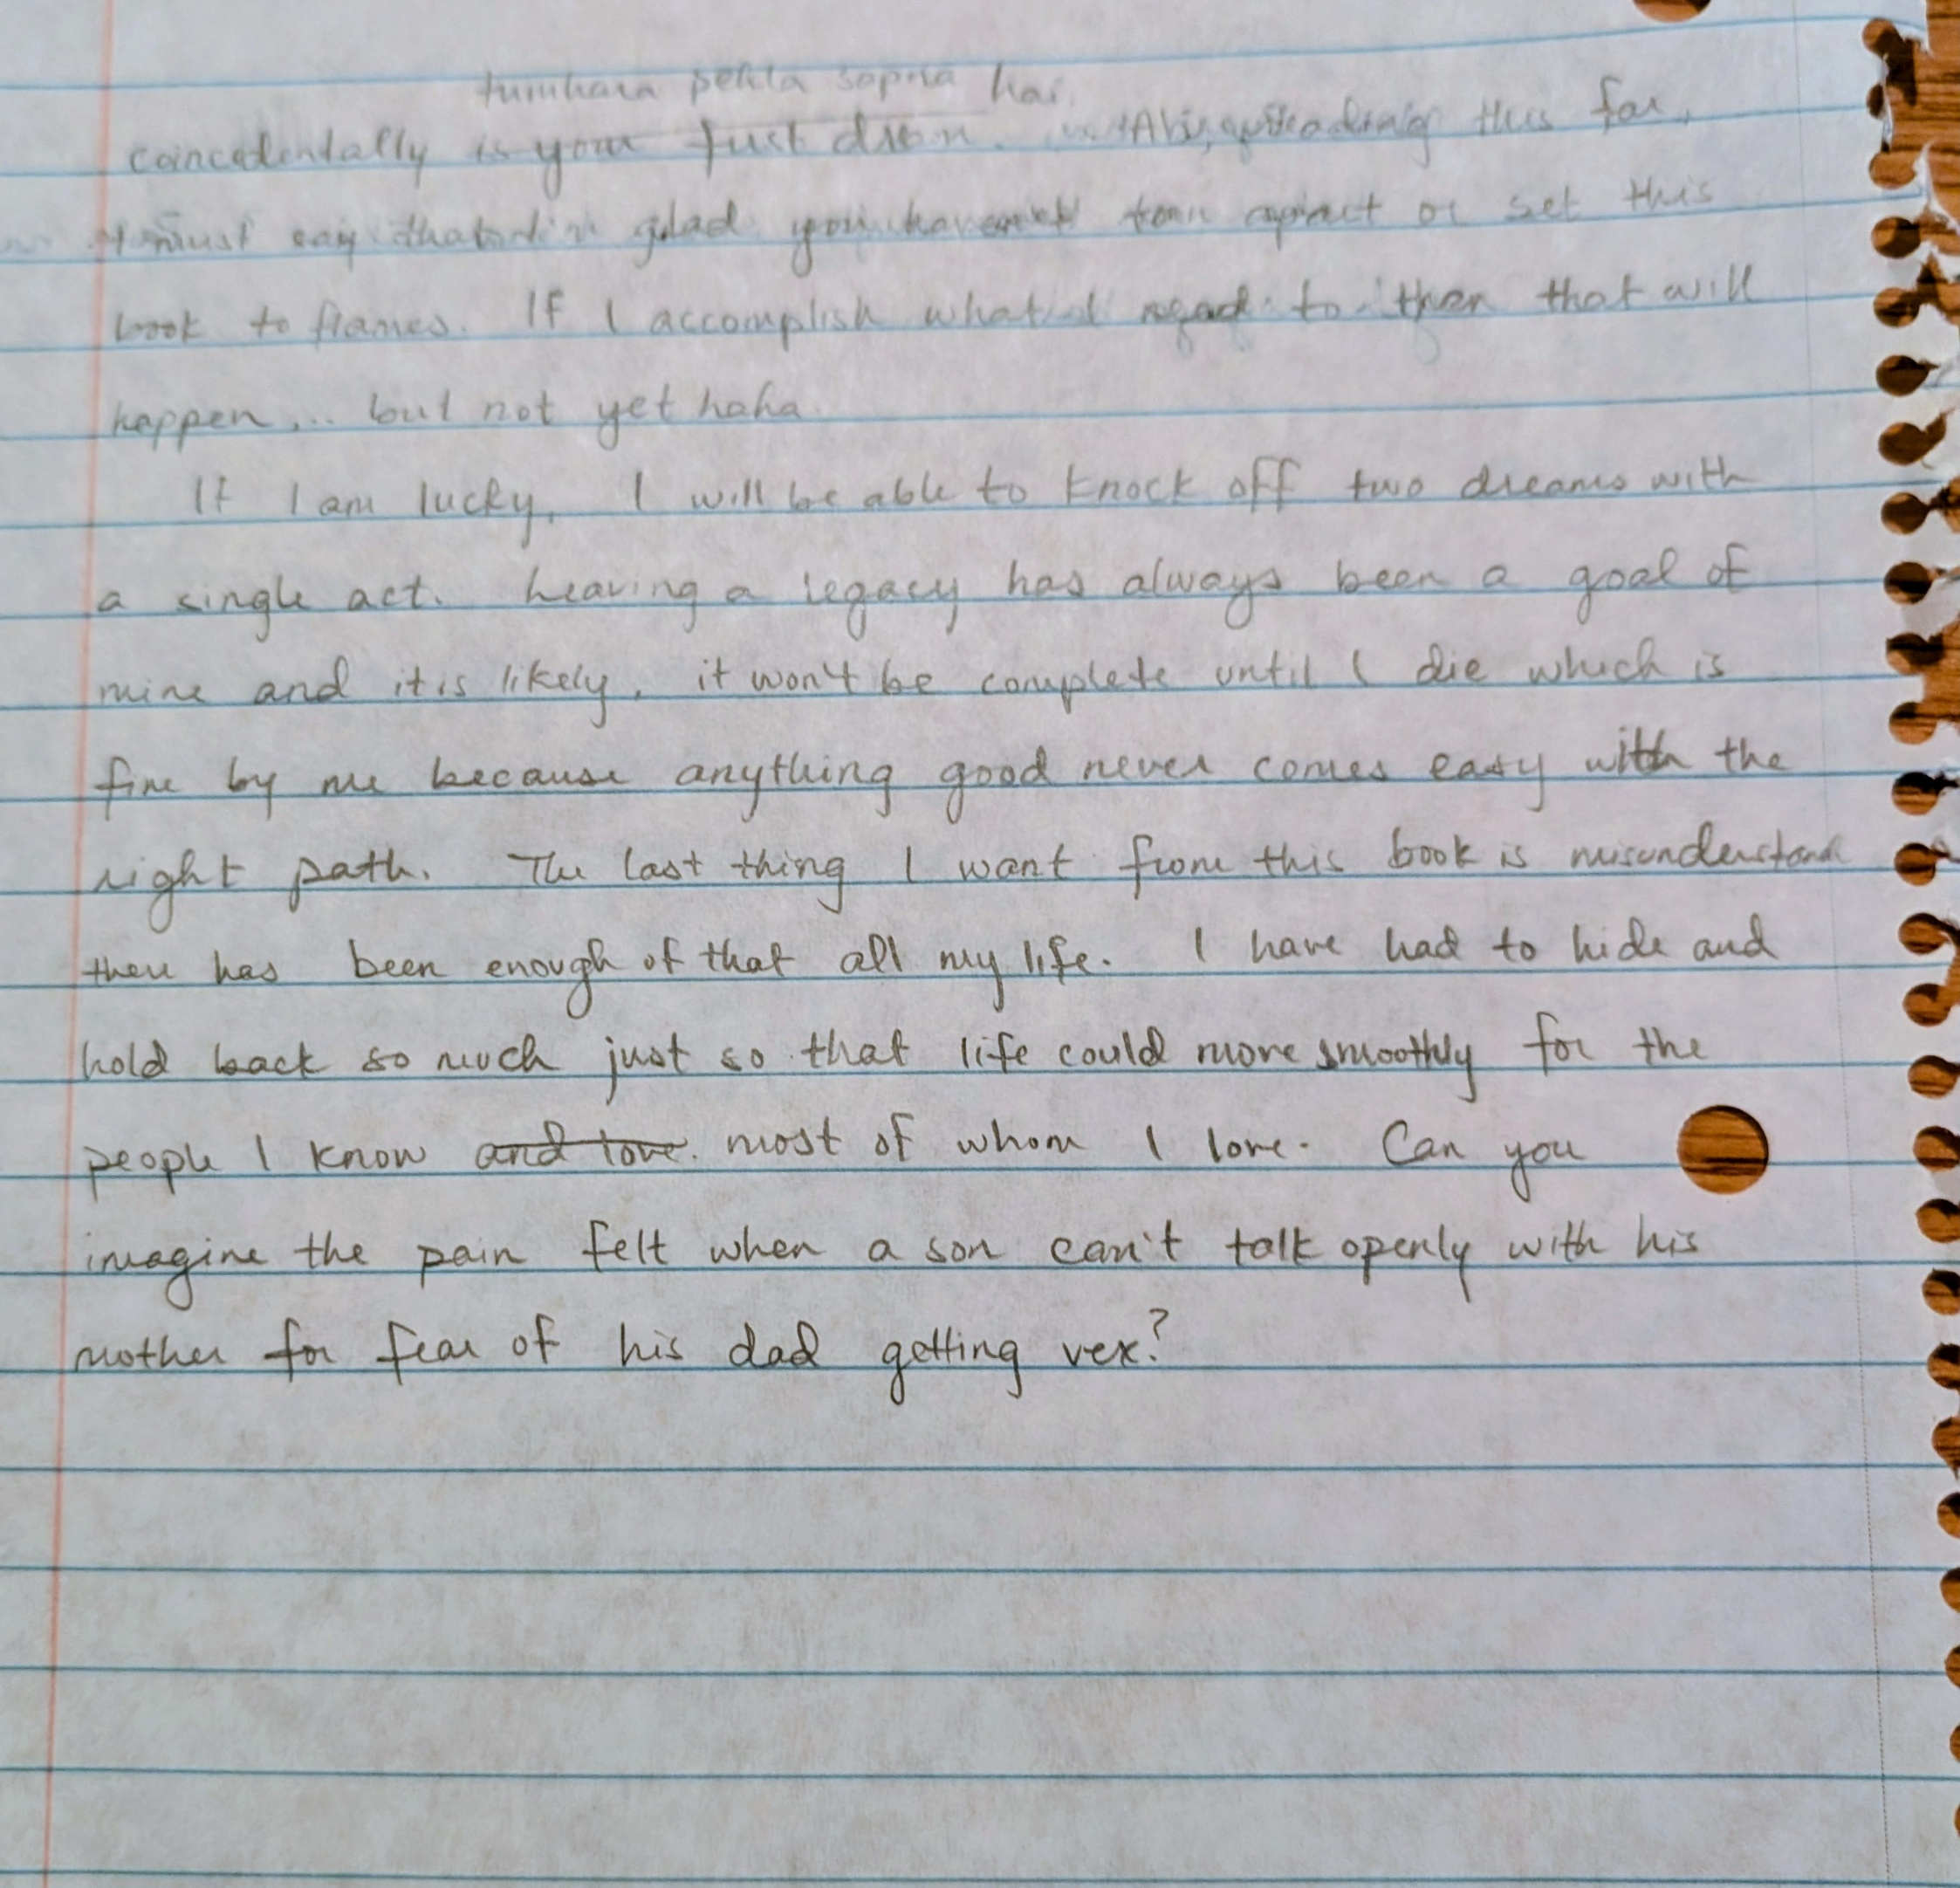 tumhara pehla sapna hai
coincedentally is your first dream. reading this far,
I must say that I'm glad you haven't torn apart or set this
book to flames. If I accomplish what I need to then that will
happen... but not yet haha
If I am lucky, I will be able to knock off two dreams with
a single act. Leaving a legacy has always been a goal of
mine and it is likely, it won't be complete until I die which is
fine by me because anything good never comes easy with the
right path. The last thing I want from this book is misunderstand
there has been enough of that all my life. I have had to hide and
hold back so much just so that life could more smoothly for the
people I know and love. most of whom I love. Can you
imagine the pain felt when a son can't talk openly with his
mother for fear of his dad getting vex?